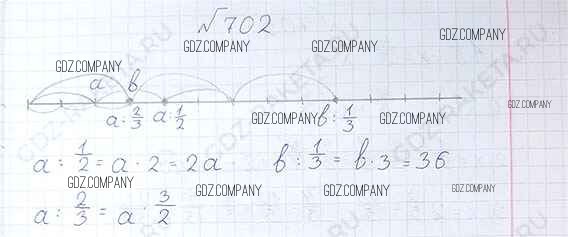 №702
GDZ.COMPANY GDZ.COMPANY
GDZ.COMPANY
a b
a · 2/3 a : 1/2 GDZ.COMPANY b : 1/3 GDZ.COMPANY
GDZ.COMPANY
a : 1/2 = a · 2 = 2a b : 1/3 = b · 3 = 3б
GDZ.COMPANY GDZ.COMPANY GDZ.COMPANY GDZ.COMPANY
a : 2/3 = a · 3/2
GDZ-RAKETA.RU
GDZ-RAKETA.RU